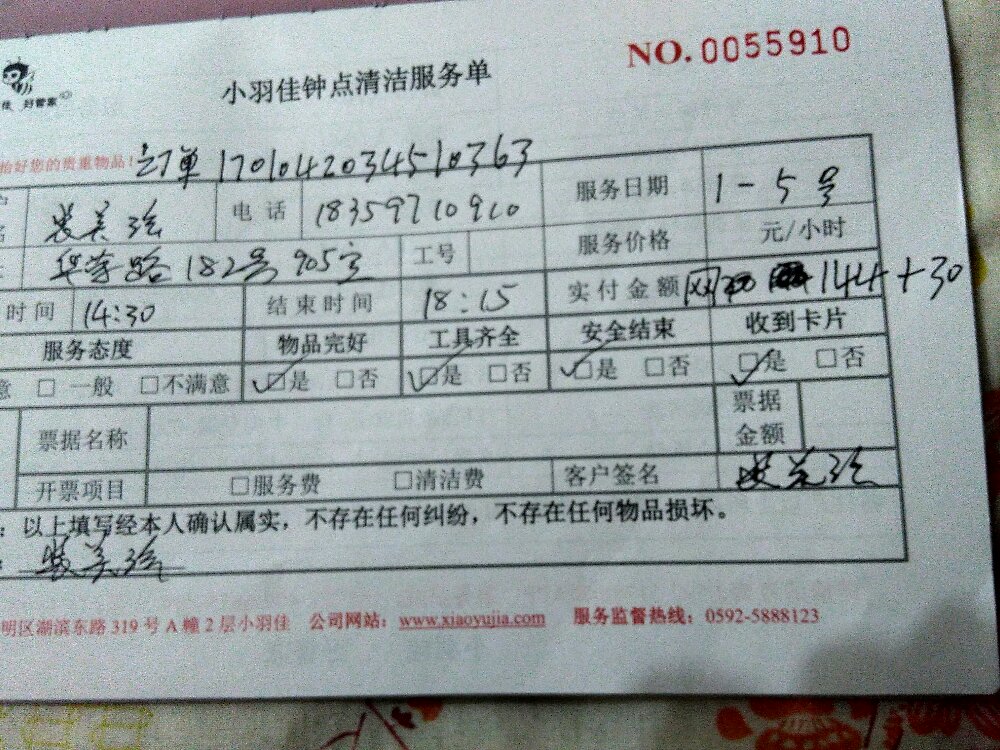 NO.0055910
小羽佳钟点清洁服务单
佳 好管家
您的贵重物品! 订单1701042034510363
电话 18359710910 服务日期 1-5号
路182号905室 工号 服务价格 元/小时
时间 14:30 结束时间 18:15 实付金额 144+30
服务态度 物品完好 工具齐全 安全结束 收到卡片
意 □ 一般 □不满意 □是 □否 □是 □否 □是 □否 □是 □否
票据名称 票据金额
开票项目 □服务费 □清洁费 客户签名
: 以上填写经本人确认属实，不存在任何纠纷，不存在任何物品损坏。
明区湖滨东路 319 号 A 幢 2 层小羽佳 公司网站：www.xiaoyujia.com 服务监督热线：0592-5888123